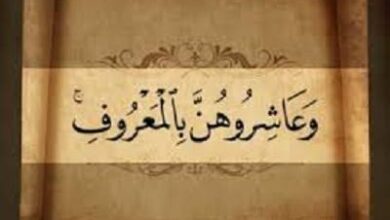 وَعَاشِرُوهُنَّ بِٱلۡمَعۡرُوفِۚ